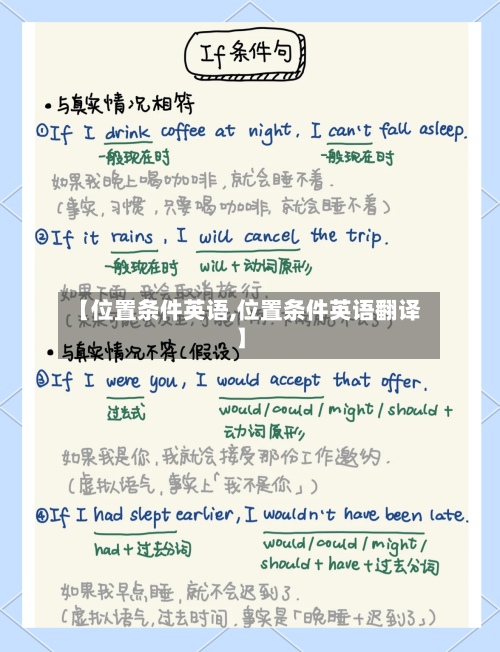 If 条件句
• 与真实情况相符
①If I drink coffee at night, I can't fall asleep.
一般现在时 一般现在时
如果我晚上喝咖啡,就会睡不着.
(事实,习惯,只要喝咖啡,就会睡不着)
②If it rains, I will cancel the trip.
一般现在时 will+动词原形
如果下雨,我会取消旅行.
【位置条件英语,位置条件英语翻译
】
• 与真实情况不符(假设)
③If I were you, I would accept that offer.
过去式 would/could/might/should+
动词原形
如果我是你,我就会接受那份工作邀约.
(虚拟语气,事实上「我不是你」)
④If I had slept earlier, I wouldn't have been late.
had+过去分词 would/could/might/
should+have+过去分词
如果我早点睡,就不会迟到了.
(虚拟语气,过去时间,事实是「晚睡+迟到了」)